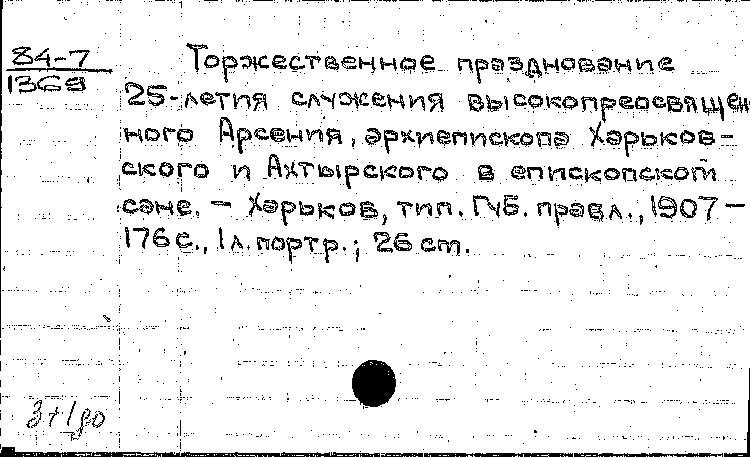 84-7
1369
Торжественное празднование
25-летия служения высокопреосвящен
ного Арсения, архиепископа Харьков-
ского и Ахтырского в епископском
сане. - Харьков, тип. Губ. правл., 1907 -
176 с., 1 л. портр.; 26 cm.
3+1